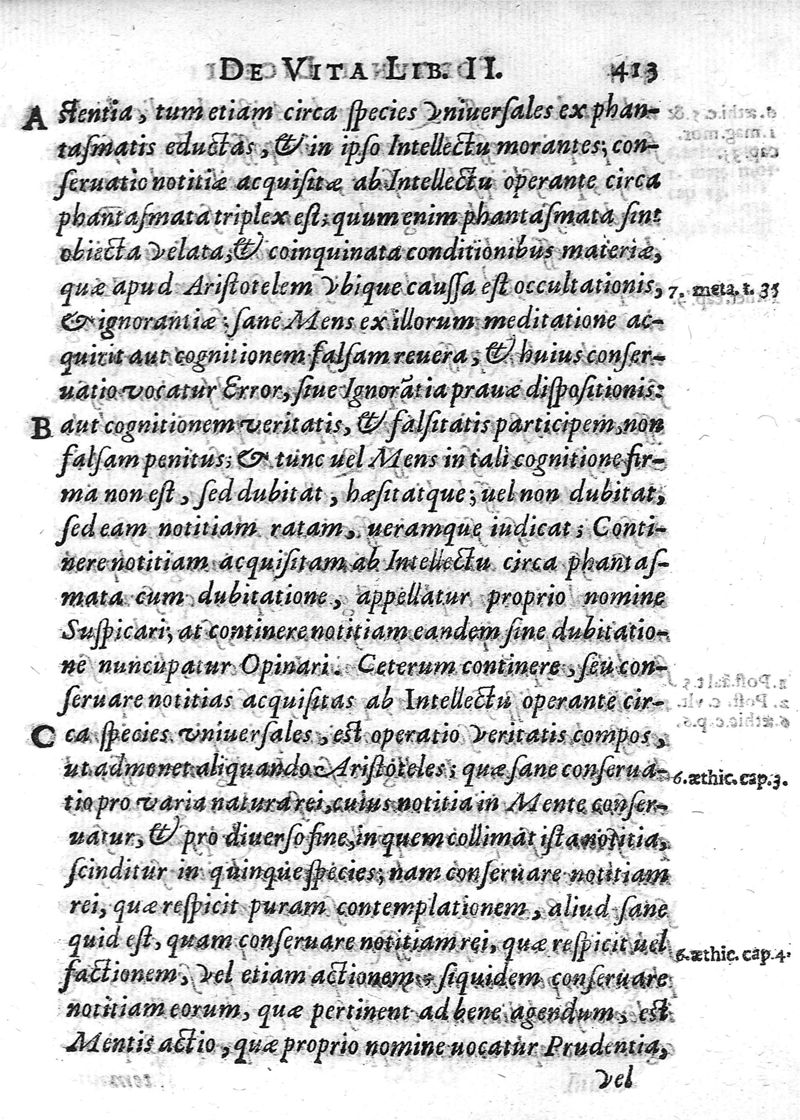 DE VITA LIB. II. 413
A stentia, tum etiam circa species vniuersales ex phan-
tasmatis eductas, & in ipso Intellectu morantes; con-
seruatio notitiæ acquisitæ ab Intellectu operante circa
phantasmata triplex est; quum enim phantasmata sint
obiecta velata, & coinquinata conditionibus materiæ,
quæ apud Aristotelem vbique caussa est occultationis, 7. meta. t. 35
& ignorantiæ; sane Mens ex illorum meditatione ac-
quirit aut cognitionem falsam reuera, & huius conser-
uatio vocatur Error, siue Ignorãtia prauæ dispositionis:
B aut cognitionem veritatis, & falsitatis participem, non
falsam penitus; & tunc uel Mens in tali cognitione fir-
ma non est, sed dubitat, hæsitatque; uel non dubitat,
sed eam notitiam ratam, ueramque iudicat; Conti-
nere notitiam acquisitam ab Intellectu circa phantas-
mata cum dubitatione, appellatur proprio nomine
Suspicari; at continere notitiam eandem sine dubitatio-
ne nuncupatur Opinari. Ceterum continere, seu con-
seruare notitias acquisitas ab Intellectu operante cir-
C ca species vniuersales, est operatio veritatis compos,
ut admonet aliquando Aristoteles; quæ sane conserua- 6. æthic. cap. 3.
tio pro varia natura rei, cuius notitia in Mente conser-
uatur, & pro diuerso fine, in quem collimãt ista notitia,
scinditur in quinque species; nam conseruare notitiam
rei, quæ respicit puram contemplationem, aliud sane
quid est, quam conseruare notitiam rei, quæ respicit uel 6. æthic. cap. 4.
factionem, vel etiam actionem; siquidem conseruare
notitiam eorum, quæ pertinent ad bene agendum, est
Mentis actio, quæ proprio nomine uocatur Prudentia,
vel